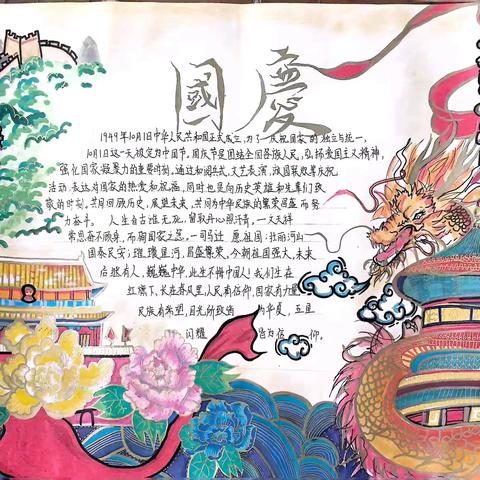 國慶
1949年10月1日中华人民共和国正式成立,为了庆祝国家的独立与统一,
10月1日这一天被定为中国节,国庆节是团结全国各族人民,弘扬爱国主义精神,
强化国家凝聚力的重要时刻,通过如阅兵式、文艺表演,放国旗致敬庆祝
活动,表达对国家的热爱和祝福,同时也是向历史英雄和先辈们致
敬的时刻,共同回顾历史,展望未来,共同为中华民族的繁荣富强而努
力奋斗。人生自古谁无死,留取丹心照汗青,一文天祥
常思奋不顾身,而殉国家之急,一司马迁 愿祖国:壮丽河山
国泰民安;璀璨星河,昌盛繁荣,今朝祖国强大,未来
后继有人,巍巍中华,此生不悔中国人!我们生在
红旗下,长在春风里,人民有信仰,国家有力量
民族有希望,目光所致皆为华夏,五星
闪耀皆为信仰。